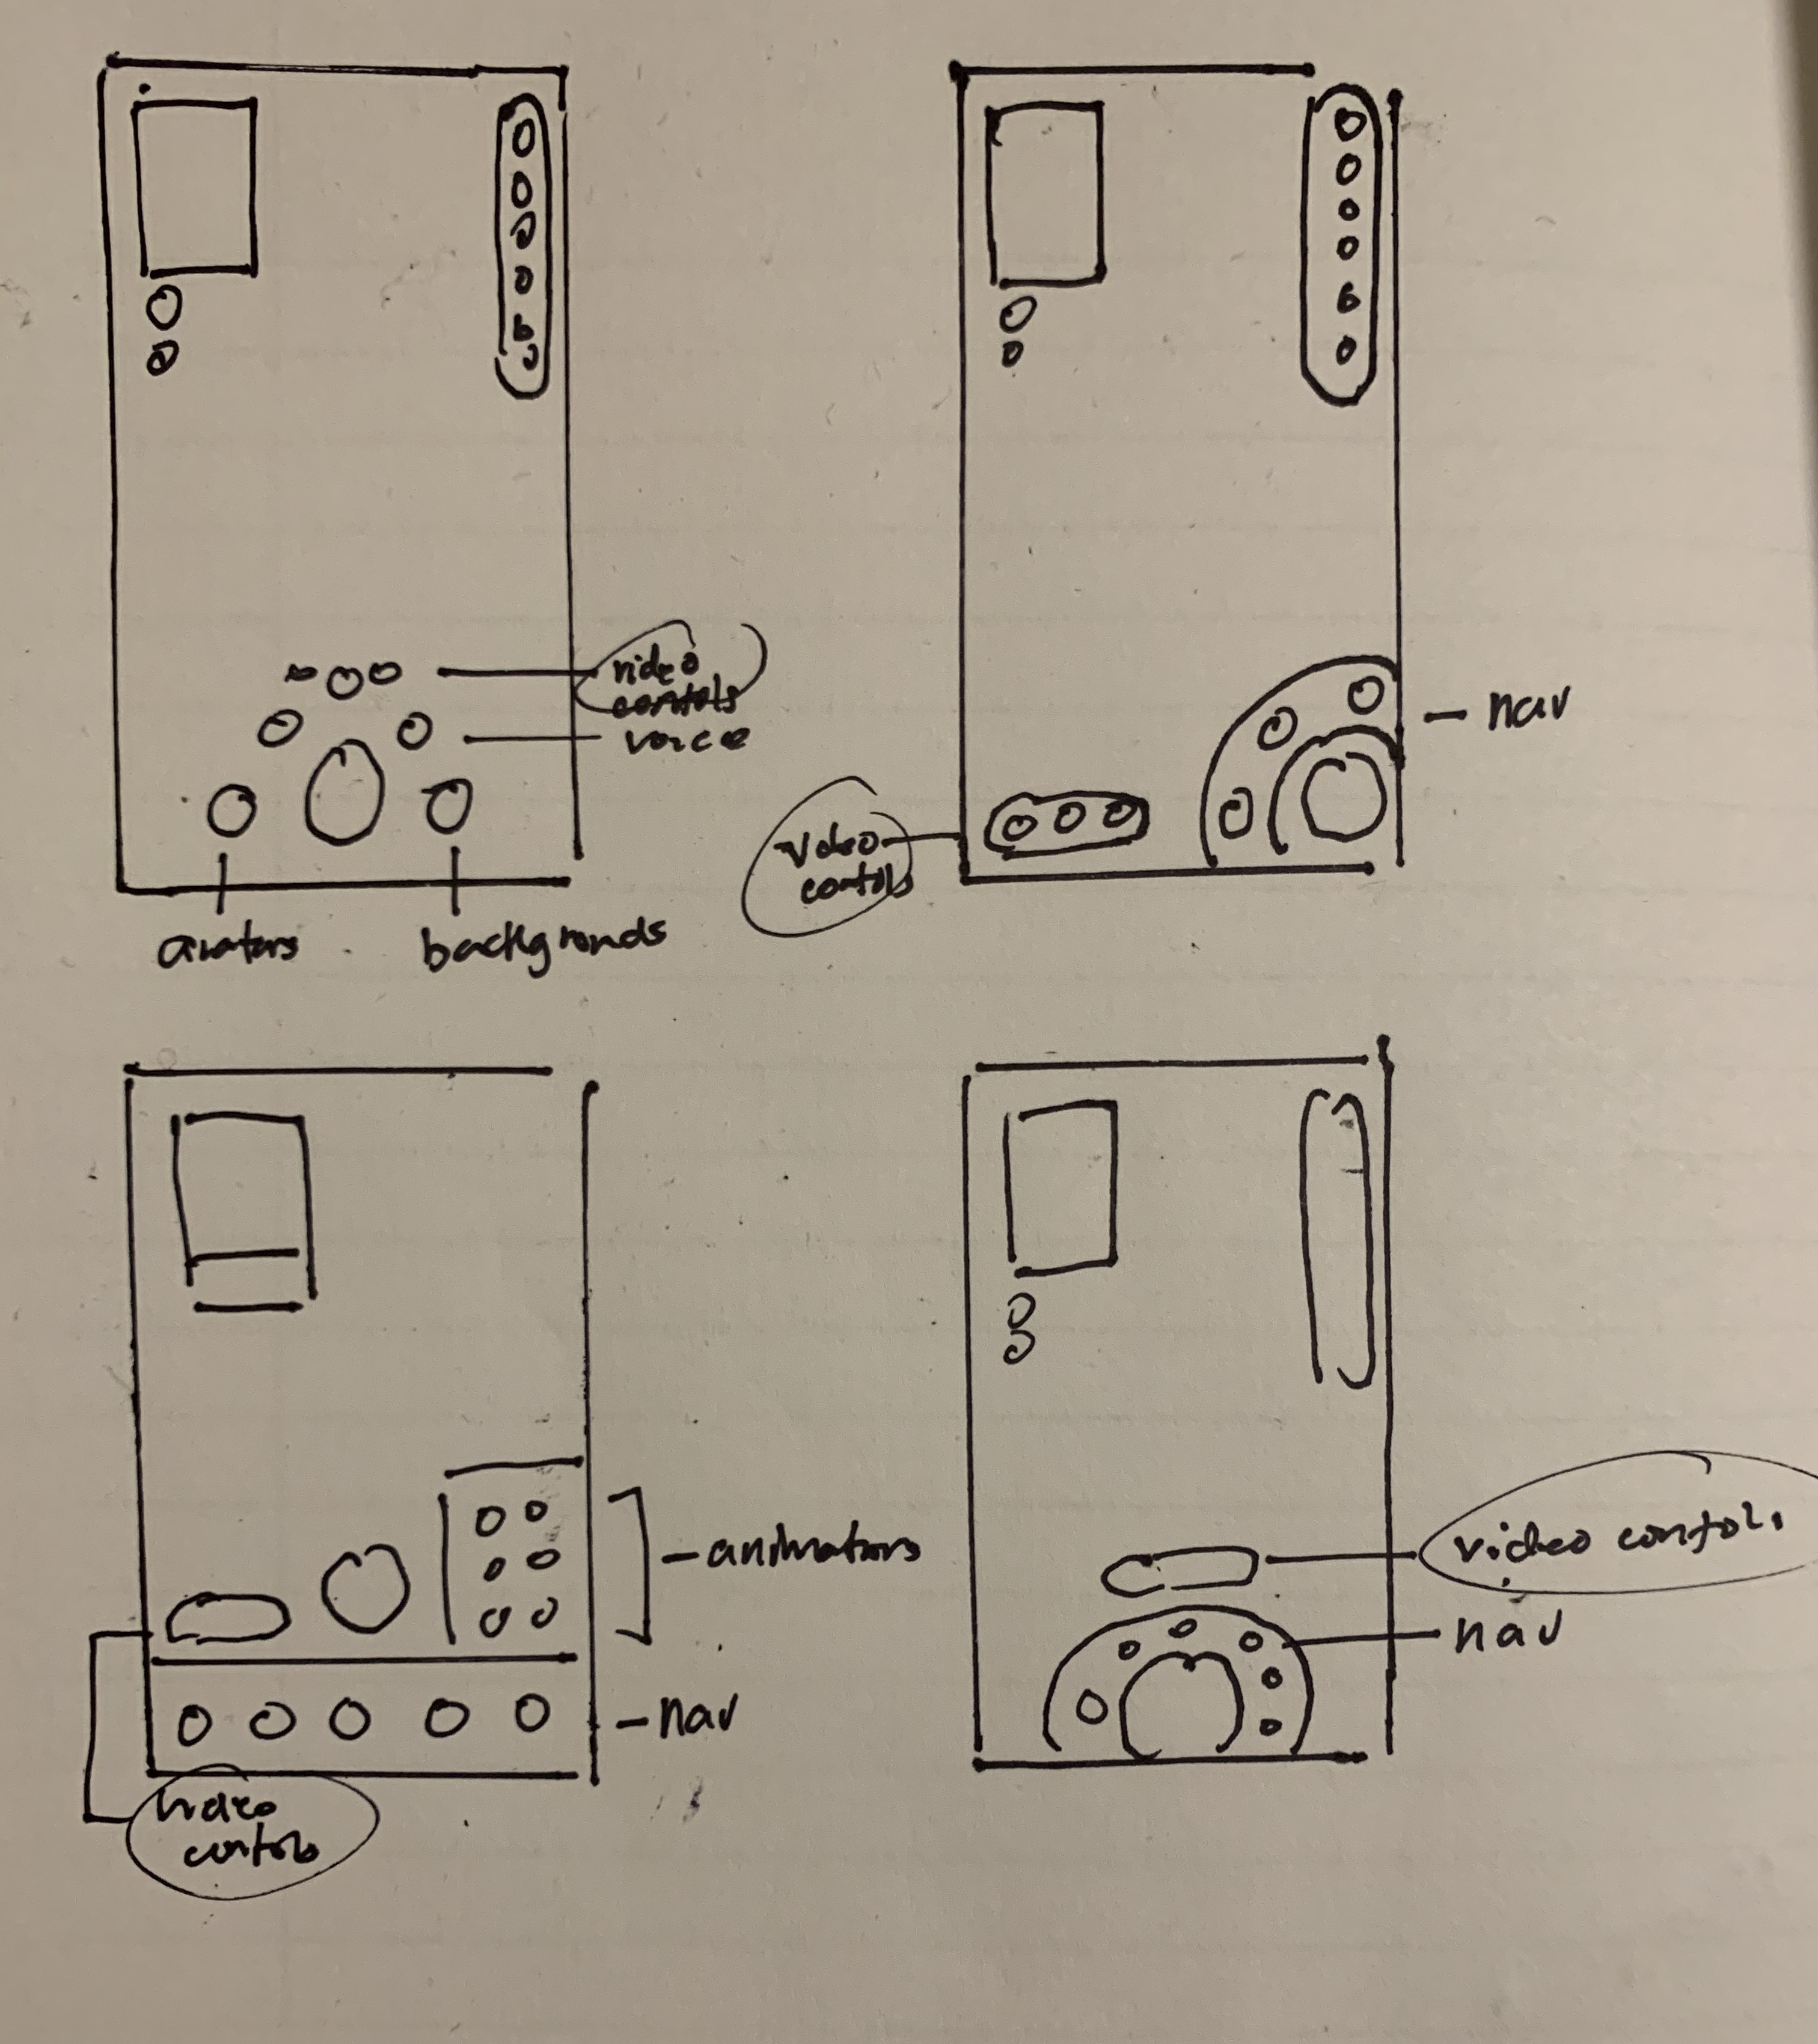 video
contols
voice
avatars
backgronds
nav
video
contols
animators
nav
video
contols
video contols
nav